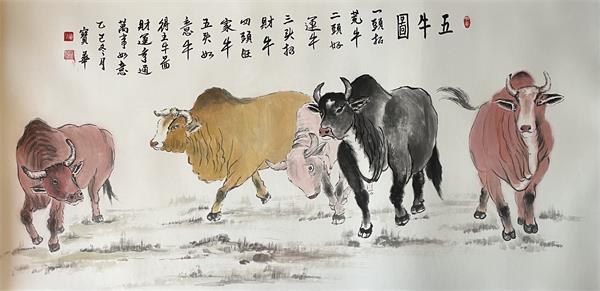 五牛圖
一頭拓
荒牛
二頭好
運牛
三头招
財牛
四頭旺
家牛
五头如
意牛
得五牛圖
財運亨通
萬事如意
乙巳冬月
寶華